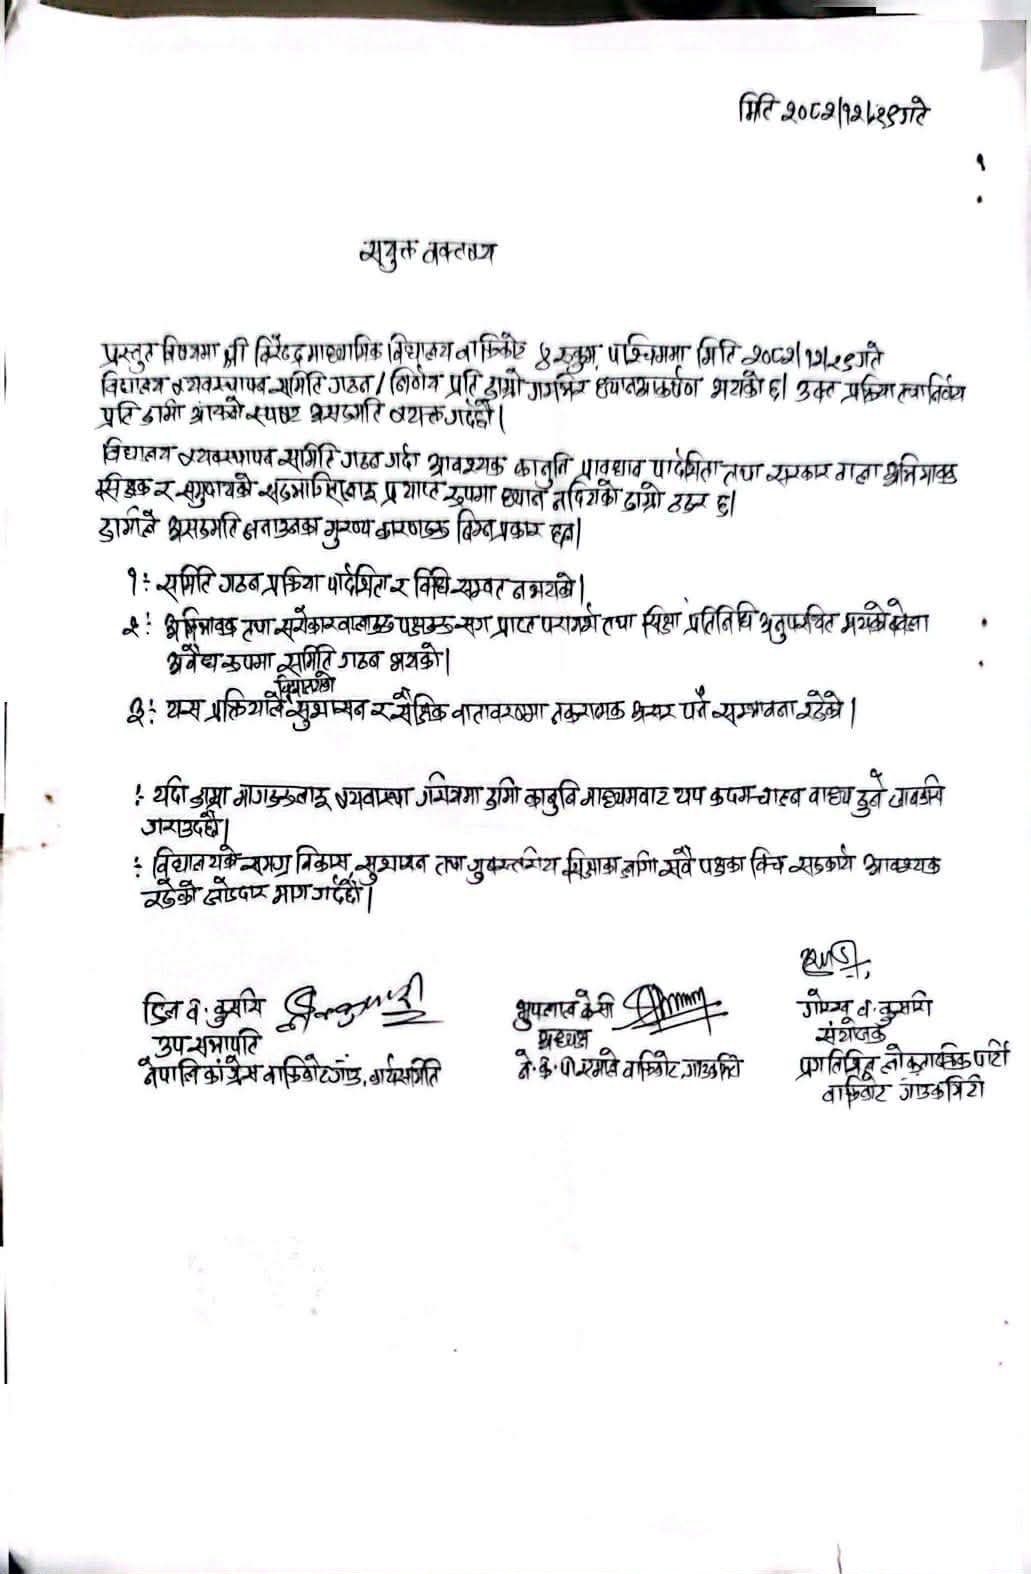 मिति २०८२/१२/२९गते
सयुक्त वक्तव्य
प्रस्तुत विषयमा श्री विरेन्द्र माध्यामिक विद्यालय बाफिकोट ४ रुकुम पश्चिममा मिति २०८२/१२/२९गते
विद्यालय व्यवस्थापन समिति गठन / निर्णय प्रति हाम्रो गम्भिर ध्यानआकर्षण भयको छ। उक्त प्रक्रिया तथा निर्णय
प्रति हामी आफ्नो स्पष्ट असहमति व्यक्त गर्दछौ।
विद्यालय व्यवस्थापन समिति गठन गर्दा आवश्यक कानुनि प्रावधान पार्दशिता तथा सरकार वाला अभिभावक
सिक्षक र समुदायको सहभागितालाइ प्रयाप्त रूपमा ध्यान नदियको हाम्रो ठहर छ।
हामीले असहमति जनाउनका मुख्य कारणहरु निम्न प्रकार छन।
१ः समिति गठन प्रक्रिया पार्दशिता र विधि सम्वत नभयको।
२ः अभिभावक तथा सरोकारवालाहरु पक्षहरु सग प्राप्त परामर्श तथा शिक्षा प्रतिनिधि अनुपस्थित भयको बेला
अवैध रुपमा समिति गठन भयको।
विद्यालयको
३ः यस प्रक्रियाले सुशासन र सैक्षिक वातावरणमा नकरात्मक असर पर्ने सम्भावना रहेको।
ः यदि हाम्रा मागहरुलाइ व्यवास्था गरियमा हामी कानुनि माध्यमवाट थप कदम चाल्न वाध्य हुने जानकारी
गराउदछौ।
ः विद्यालयको समग्र विकास, सुशासन तथा गुणस्तरीय शिक्षाका लागी सवै पक्षका विच सहकार्य आवश्यक
रहेको जोडदार माग गर्दछौ।
डिल व. कुमारि
उप सभापति
नेपालि कांग्रेस बाफिकोट गाउ कार्यसमिति
भुपलाल केसी
अध्यक्ष
ने. क. पा एमाले बाफिकोट गाउकमिटि
गोरख व. कुमारि
संयोजक
प्रगतिशिल लोकतान्त्रिक पार्टी
बाफिकोट गाउकमिटी